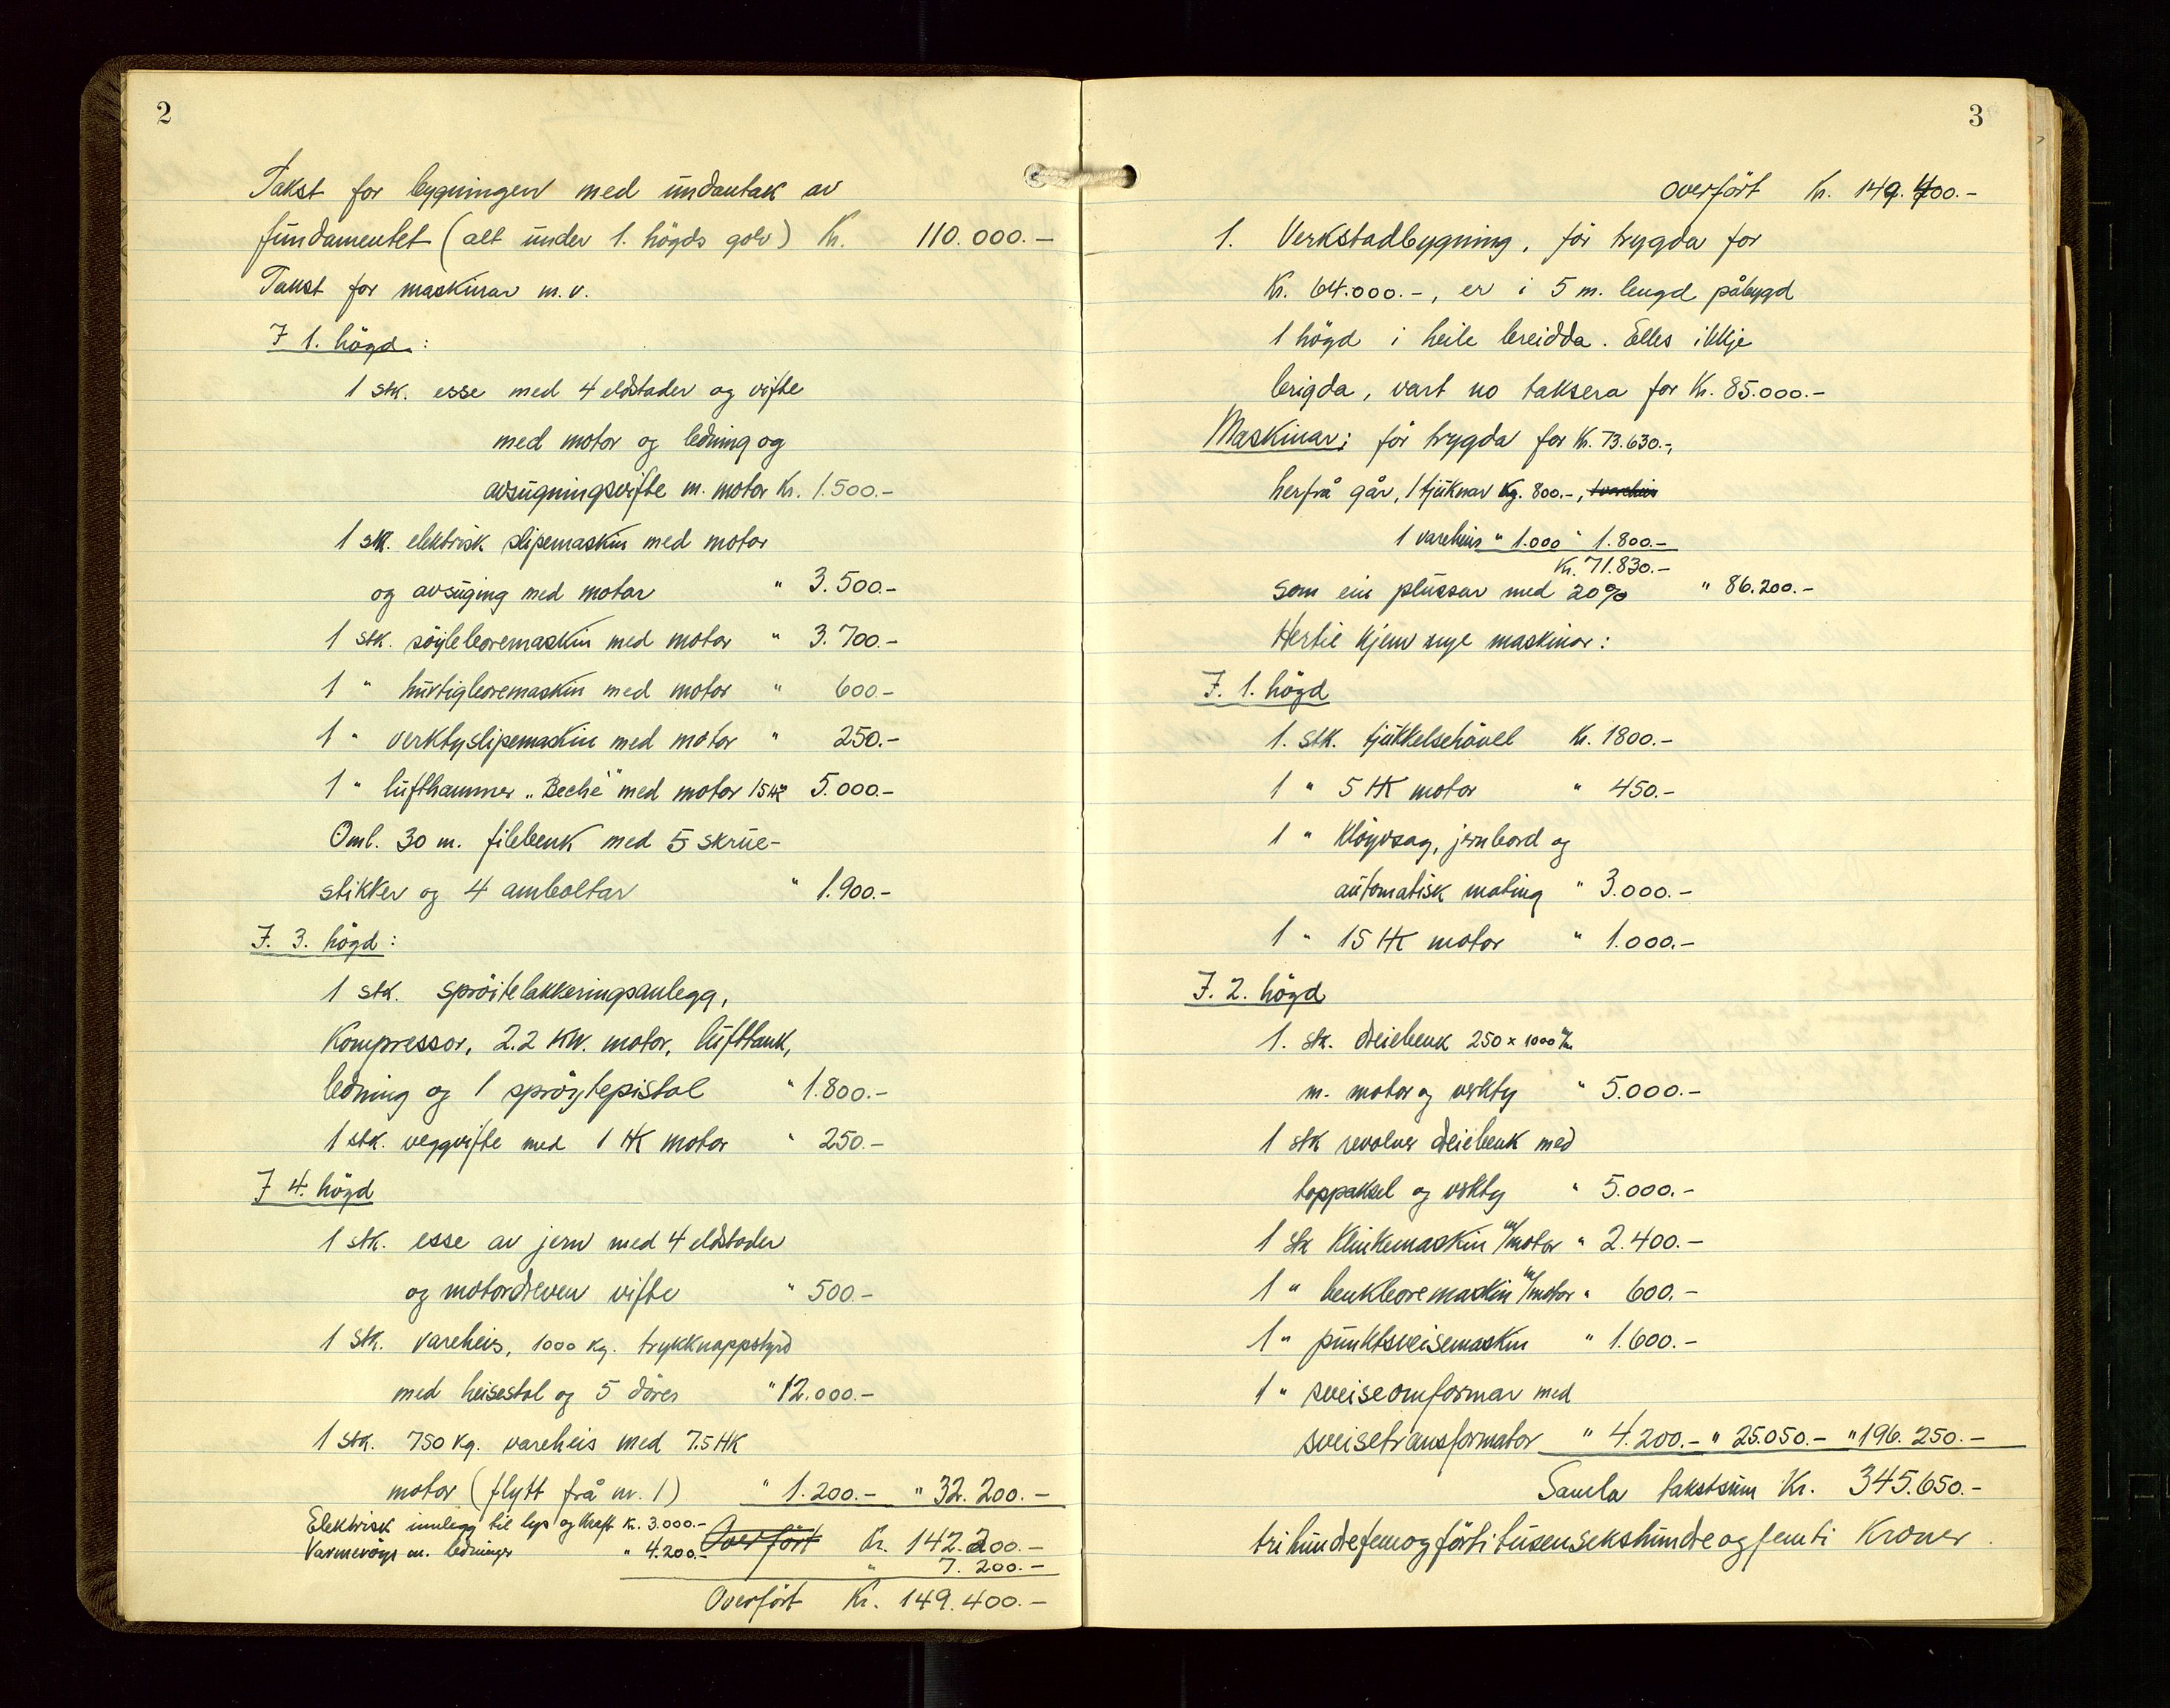 2
Takst for bygningen med undantak av
fundamentet (alt under 1. högds golv) Kr. 110.000.-
Takst for maskinar m.v.
I 1. högd:
1 stk. esse med 4 eldstader og vifte
med motor og ledning og
avsugningsvifte m. motor Kr. 1.500.-
1 stk. elektrisk slipemaskin med motor
og avsuging med motor " 3.500.-
1 stk. söyleboremaskin med motor " 3.700.-
1 " hurtigboremaskin med motor " 600.-
1 " verktyslipemaskin med motor " 250.-
1 " lufthammer "Beché" med motor 15 HK 5.000.-
Oml. 30 m. filebenk med 5 skrue-
stikker og 4 amboltar " 1.900.-
I. 3. högd:
1 stk. spröitelakkeringsanlegg,
Kompressor, 2.2 KW. motor, lufttank,
ledning og 1 spröytepistol " 1.800.-
1 stk. veggvifte med 1 HK motor " 250.-
I 4. högd
1 stk. esse av jern med 4 eldstader
og motordreven vifte " 500.-
1 stk. vareheis, 1000 kg. trykknappstyrd
med heisestol og 5 dörer " 12.000.-
1 stk. 750 kg. vareheis med 7.5 HK
motor (flytt frå nr. 1) " 1.200.- " 32.200.-
Elektrisk innlegg til lys og kraft Kr. 3.000.- Overfört Kr. 142.200.-
Varmeröyr m. ledninger " 4.200.- " 7.200.-
Overfört Kr. 149.400.-
3
overfört Kr. 149.400.-
1. Verkstadbygning, för trygda for
Kr. 64.000.-, er i 5 m. lengd påbygd
1 högd i heile breidda. Elles ikkje
brigda, vart no taksera for Kr. 85.000.-
Maskinar; för trygda for Kr. 73.630.-,
herfrå går, 1 tjuknar Kr. 800.-, 1 vareheis
1 vareheis " 1.000 " 1.800.-
Kr. 71.830.-
som ein plussar med 20% " 86.200.-
Hertil kjem nye maskinar:
I. 1. högd
1. stk. tjukkelsehövel Kr. 1800.-
1 " 5 HK motor " 450.-
1 " Klöyvsag, jernbord og
automatisk mating " 3.000.-
1 " 15 HK motor " 1.000.-
I. 2. högd
1. stk. dreiebenk 250 x 1000 m/m
m. motor og verkty " 5.000.-
1 stk revolver dreiebenk med
toppaksel og verkty " 5.000.-
1 stk Klinkemaskin m/motor " 2.400.-
1 " benkboremaskin m/motor " 600.-
1 " punktsveisemaskin " 1.600.-
1 " sveiseomformar med
sveisetransformator " 4.200.- " 25.050.- " 196.250.-
Samla takstsum Kr. 345.650.-
trihundrefemogförtitusensekshundreogfemti Kroner.